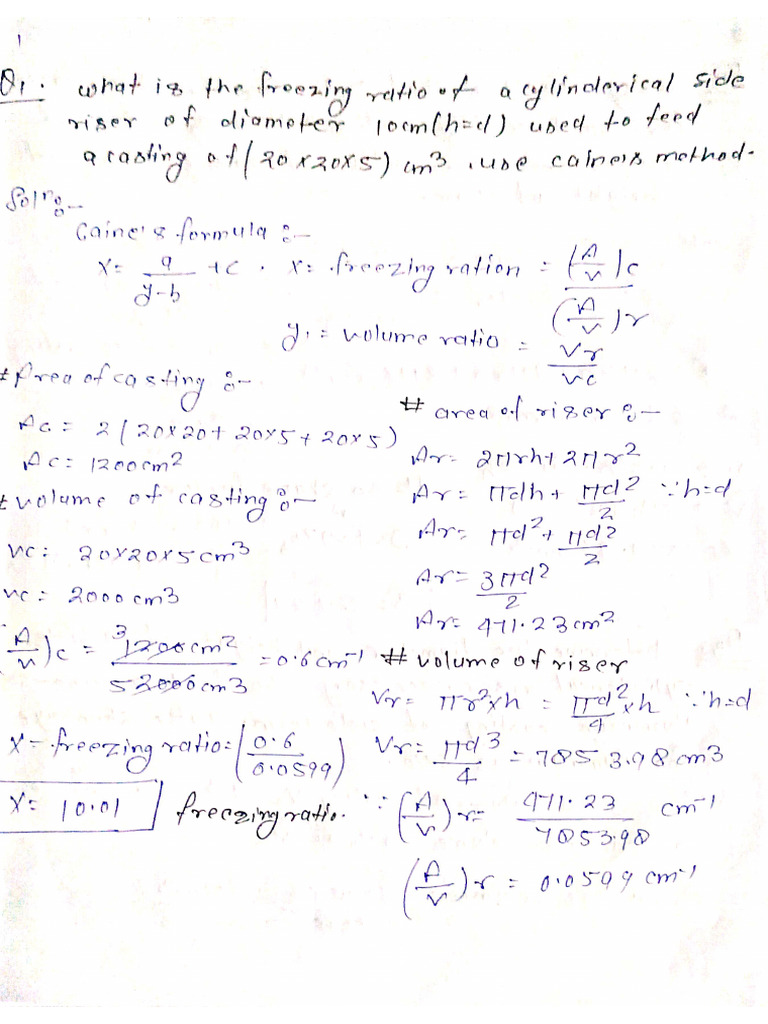 1
Q1. what is the freezing ratio of a cylinderical side
riser of diameter 10cm (h=d) used to feed
a casting of (20×20×5) cm³. use caine's method.
Soln:-
Caine's formula :-
X = a/(y-b) + c . X = freezing ration = (A/V)c / (A/V)r
y = volume ratio = Vr/Vc
# Area of casting :-
Ac = 2(20×20+20×5+20×5)
Ac = 1200cm²
# volume of casting :-
vc = 20×20×5cm³
vc = 2000cm³
(A/V)c = 3 1200cm² / 5 2000cm³ = 0.6cm⁻¹
X = freezing ratio = (0.6/0.0599)
X = 10.01 freezing ratio.
# area of riser :-
Ar = 2πrh+2πr²
Ar = πdh + πd²/2 ∵h=d
Ar = πd² + πd²/2
Ar = 3πd²/2
Ar = 471.23cm²
# volume of riser
Vr = πr²×h = πd²/4×h ∵h=d
Vr = πd³/4 = 7853.98 cm³
∵ (A/V)r = 471.23/7853.98 cm⁻¹
(A/V)r = 0.0599 cm⁻¹